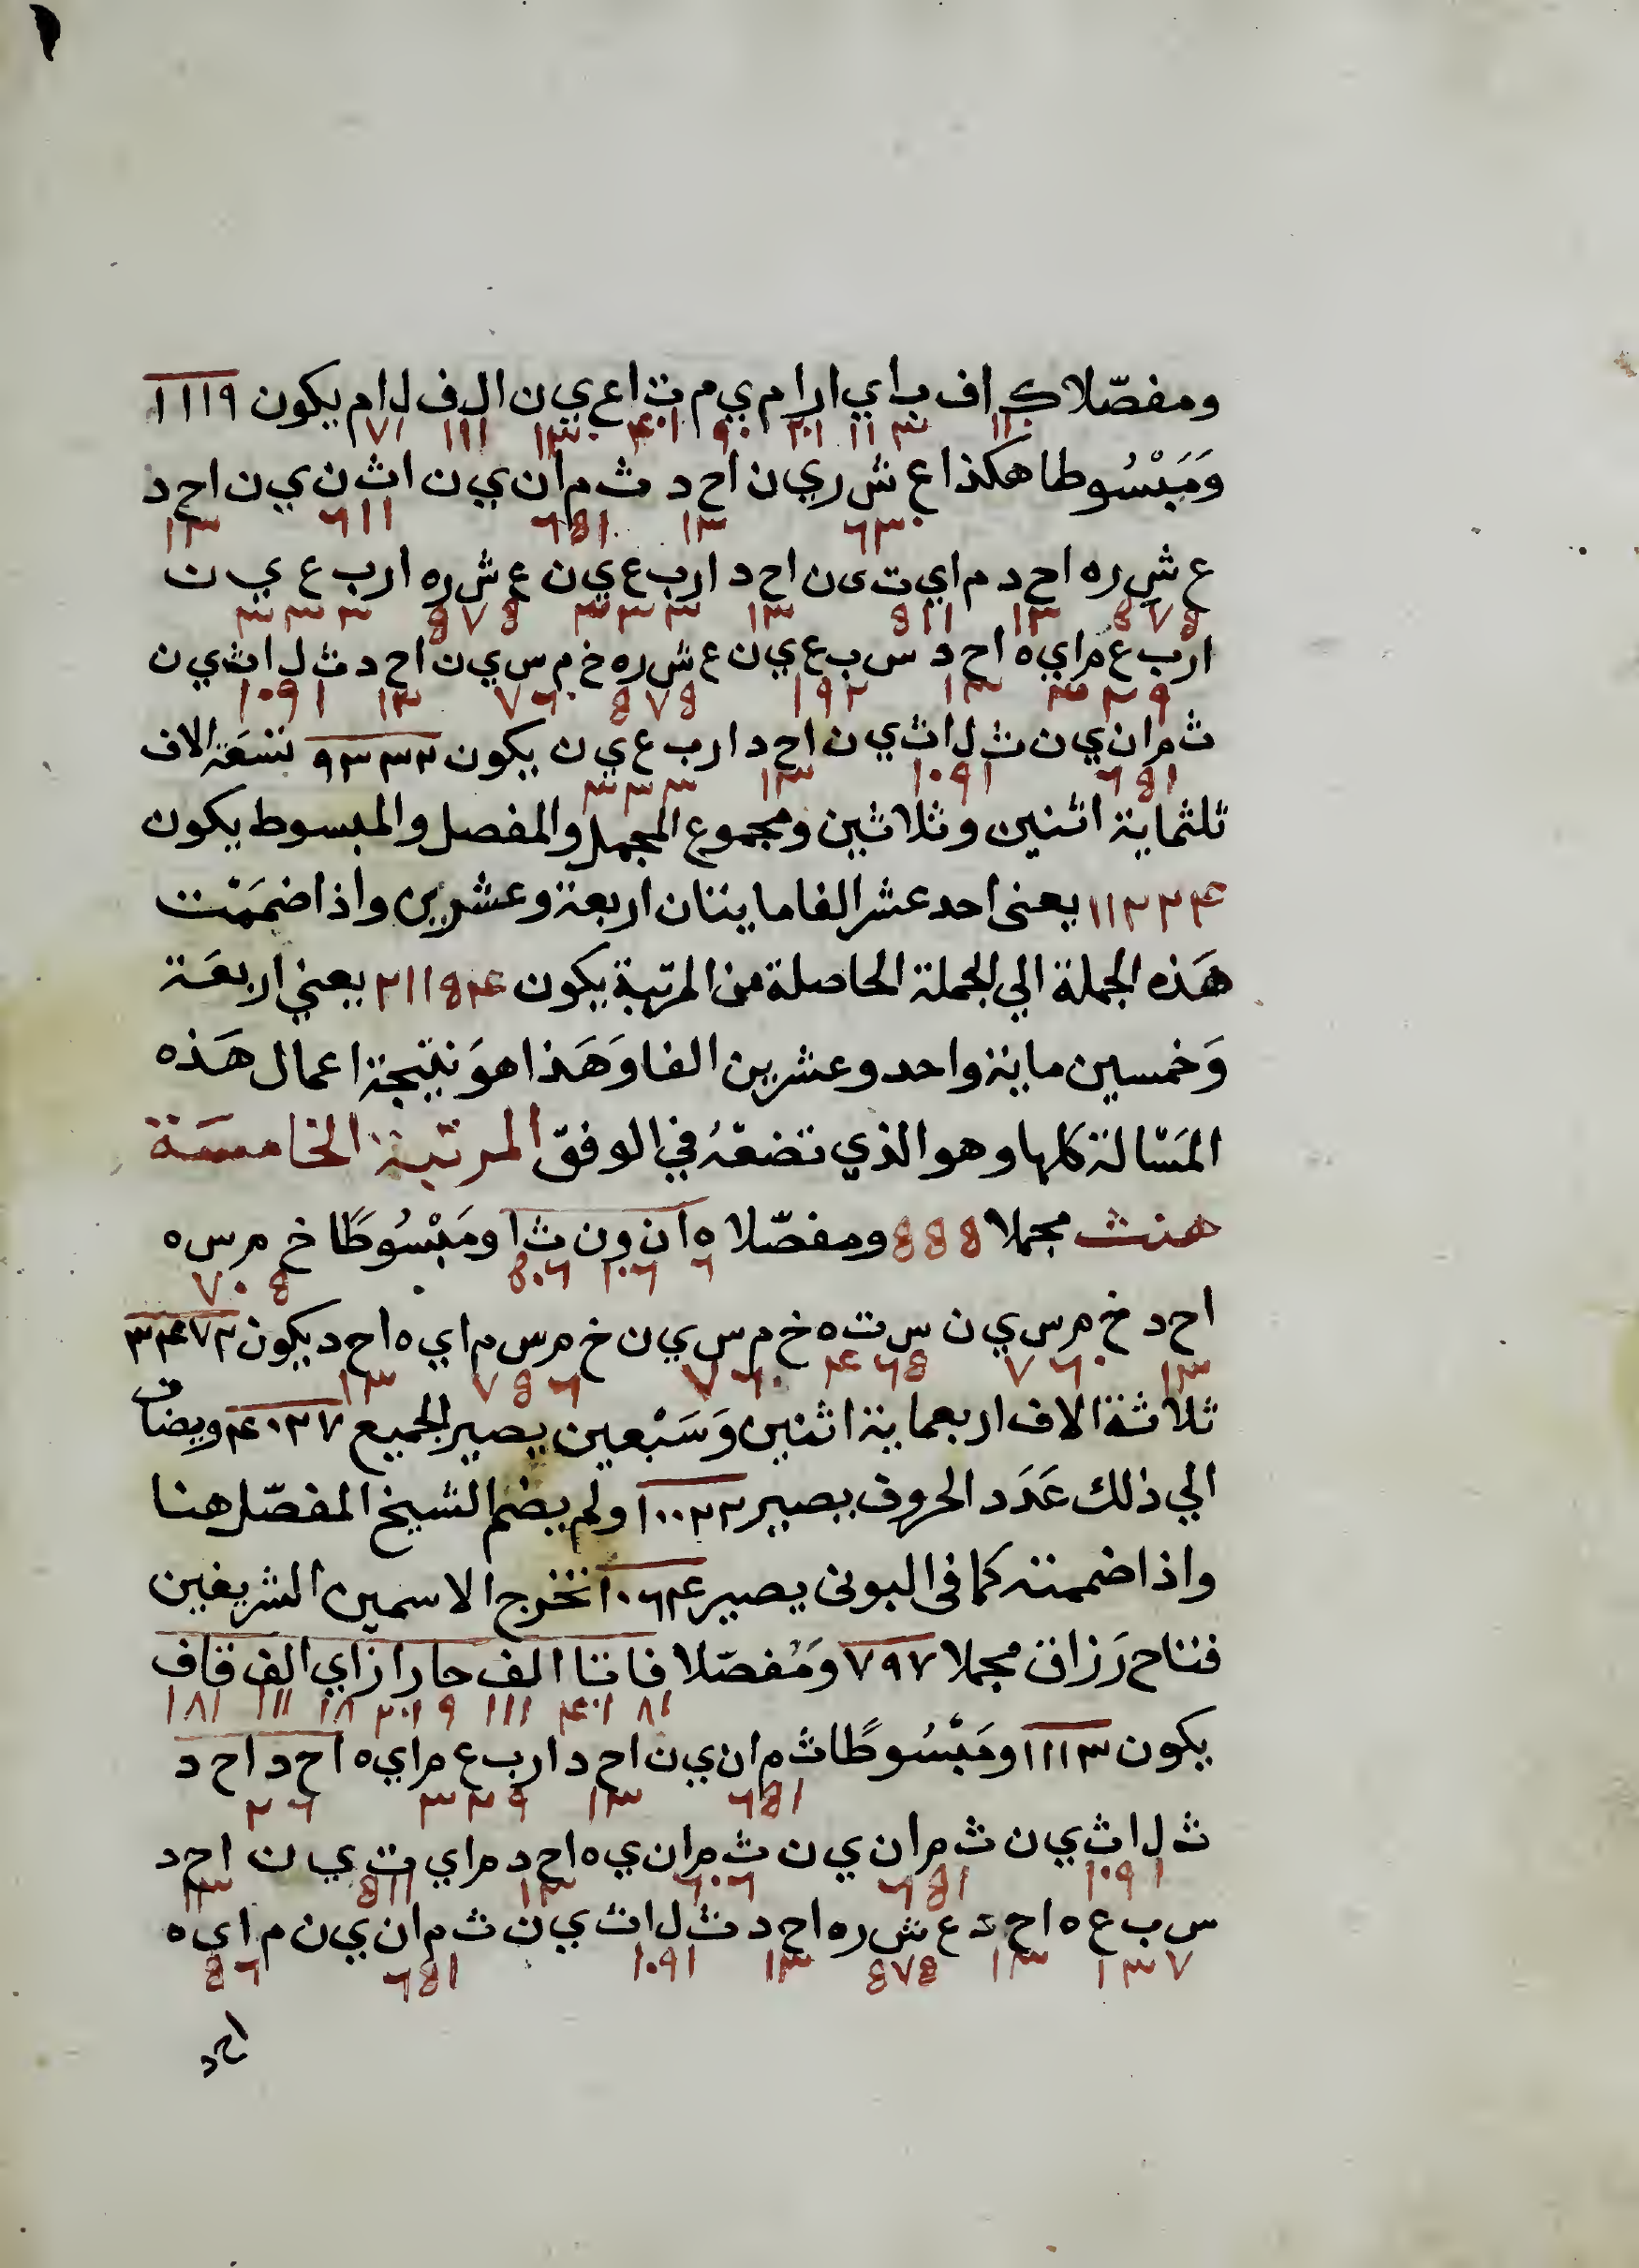 ومفصّلا ك اف ب ا ي ا ر ا م ي م ت ا ع ي ن ا ل ف ل ا م يكون ١١١٩
١٠١ ٣ ١١ ٢٠١ ٩٠ ٤٠١ ١٣٠ ١١١ ٧١
وَمَبْسُوطا هكذا ع ش ر ي ن ا ح د ث م ا ن ي ن ا ث ن ي ن ا ح د
٦٣٠ ١٣ ٦٥١ ٦١١ ١٣
ع ش ر ه ا ح د م ا ي ت ى ن ا ح د ا ر ب ع ي ن ع ش ر ه ا ر ب ع ي ن
٥٧٥ ١٣ ٥١١ ١٣ ٣٣٣ ٥٧٥ ٣٣٣
ا ر ب ع م ا ي ه ا ح د س ب ع ي ن ع ش ر ه خ م س ي ن ا ح د ث ل ا ث ي ن
٣٢٩ ١٣ ١٩٢ ٥٧٥ ٧٦٠ ١٣ ١٠٩١
ث م ا ن ي ن ث ل ا ث ي ن ا ح د ا ر ب ع ي ن يكون ٩٣٣٢ تسعَة الاف
٦٥١ ١٠٩١ ١٣ ٣٣٣
ثلثماية اثنين وثلاثين ومجموع المجمل والمفصل والمبسوط يكون
١١٢٢٤ يعنى احد عشر الفا مايتان اربعة وعشرين واذا ضمَمْت
هَذه الجملة الي الجملة الحاصلة من المرتبة يكون ٢١١٥٤ يعني اربعَة
وَخمسين ماية واحد وعشرين الفا وَهَذا هوَ نتيجة اعمال هَذه
المَسْالة كلها وهو الذي تضعْهُ في الوفق المرتبة الخامسَة
هنث مجملا ٥٥٥ ومفصّلا ه ا ن و ن ث ا ومَبْسُوطًا خ م س ه
٦ ١٠٦ ٥٠٦ ٧٠٥
ا ح د خ م س ي ن س ت ه خ م س ي ن خ م س م ا ي ه ا ح د يكون ٣٤٧٢
١٣ ٧٦٠ ٤٦٥ ٧٦٠ ٧٥٦ ١٣
ثلاثة الاف اربعماية اثنين وَسَبْعين يصير الجميع ٤٠٢٧ ويضاف
الي ذلك عَدَد الحروف يصير ١٠٠٢٢ ولم يضم الشيخ المفصّل هنا
واذا ضممته كما فى البونى يصير ١٠٦٤ تخرج الاسمين الشريفين
فتاح رَزاق مجملا ٧٩٧ ومُفصّلا فا تا الف حا را زاي الف قاف
٨١ ٤٠١ ١١١ ٩ ٢٠١ ١٨ ١١١ ١٨١
يكون ١١١٣ ومَبْسُوطًا ث م ا ن ي ن ا ح د ا ر ب ع م ا ي ه ا ح د ا ح د
٦٥١ ١٣ ٣٢٩ ٢٦
ث ل ا ث ي ن ث م ا ن ي ن ث م ا ن ي ه ا ح د م ا ي ت ي ن ا ح د
١٠٩١ ٦٥١ ٦٠٦ ١٣ ٥١١ ١٣
س ب ع ه ا ح د ع ش ر ه ا ح د ث ل ا ث ي ن ث م ا ن ي ن م ا ي ه
١٣٧ ١٣ ٥٧٥ ١٣ ١٠٩١ ٦٥١ ٥٦
احد